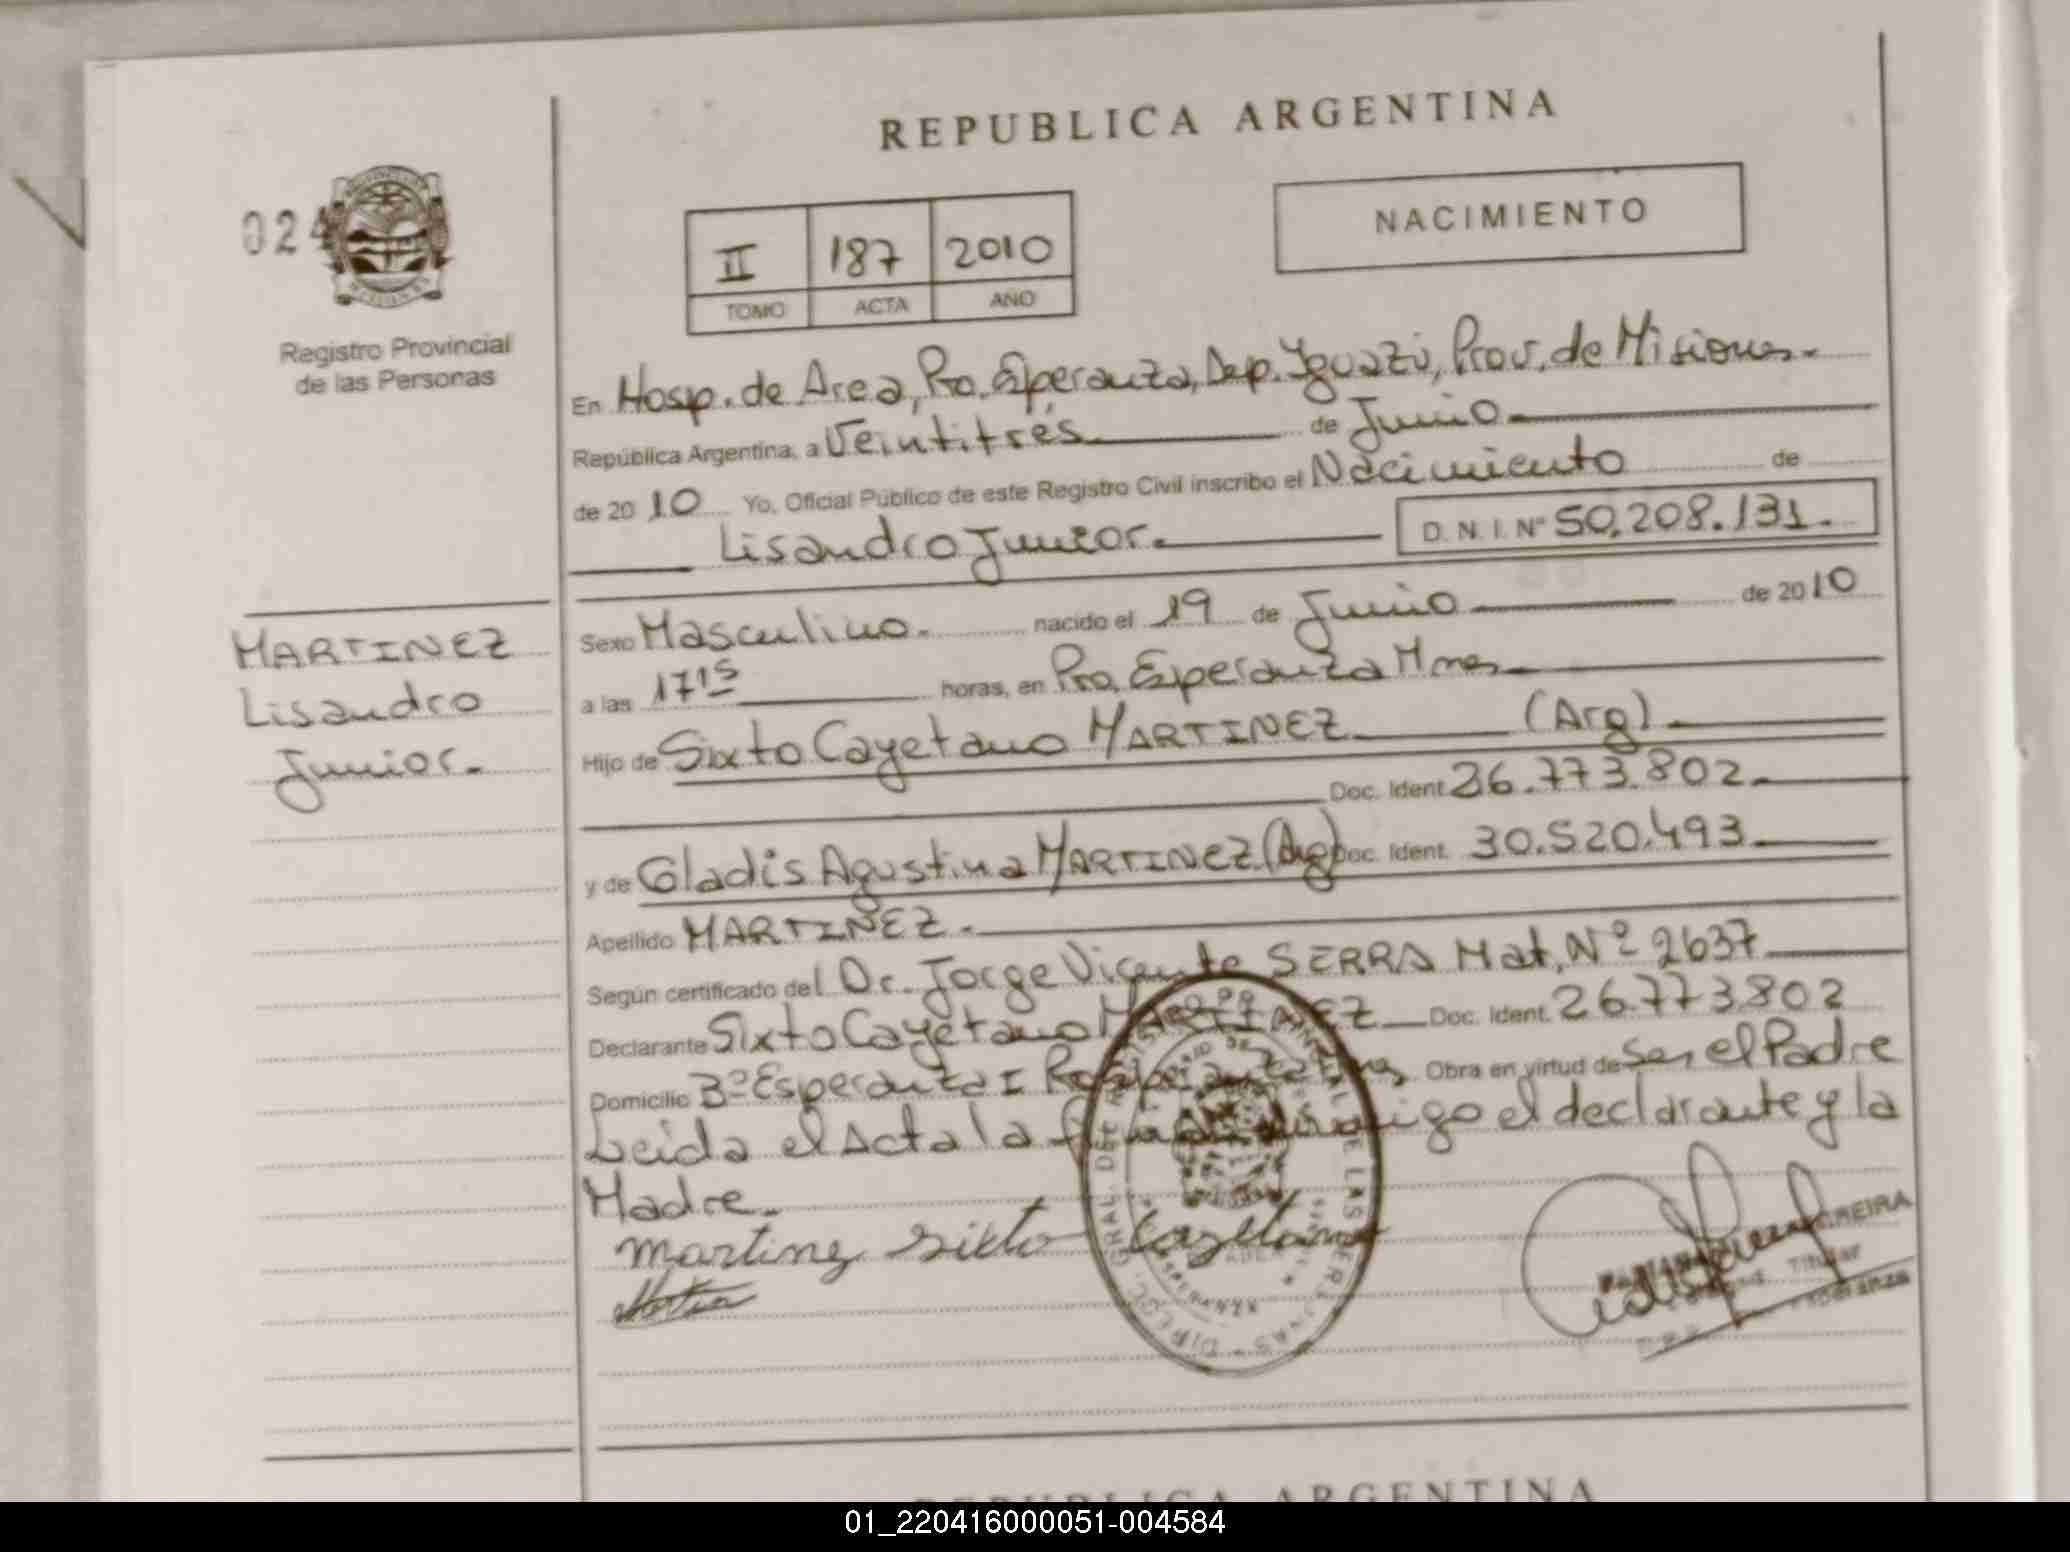 REPUBLICA ARGENTINA
024
NACIMIENTO
II 187 2010
TOMO ACTA AÑO
Registro Provincial
de las Personas
En Hosp. de Area, Pto. Esperanza, Dep. Iguazú, Prov. de Misiones.
República Argentina, a Veintitrés de Junio
de 2010 Yo, Oficial Público de este Registro Civil inscribo el Nacimiento de
Lisandro Junior. D. N. I. Nº 50.208.131.
MARTINEZ
Lisandro
Junior.
Sexo Masculino. nacido el 19 de Junio de 2010
a las 17 15 horas, en Pto. Esperanza Mnes
Hijo de Sixto Cayetano MARTINEZ (Arg)
Doc. Ident. 26.773.802.
y de Gladis Agustina MARTINEZ (Arg) Doc. Ident. 30.520.493
Apellido MARTINEZ.
Según certificado del Dr. Jorge Vicente SERRA Mat. Nº 2637
Declarante Sixto Cayetano MARTINEZ Doc. Ident. 26.773802
Domicilio Bº Esperanza I Obra en virtud de Ser el Padre
Leida el Acta la el declarante y la
Madre.
martinez Sixto Cayetano
REIRA
Titular
REPUBLICA ARGENTINA
01_220416000051-004584